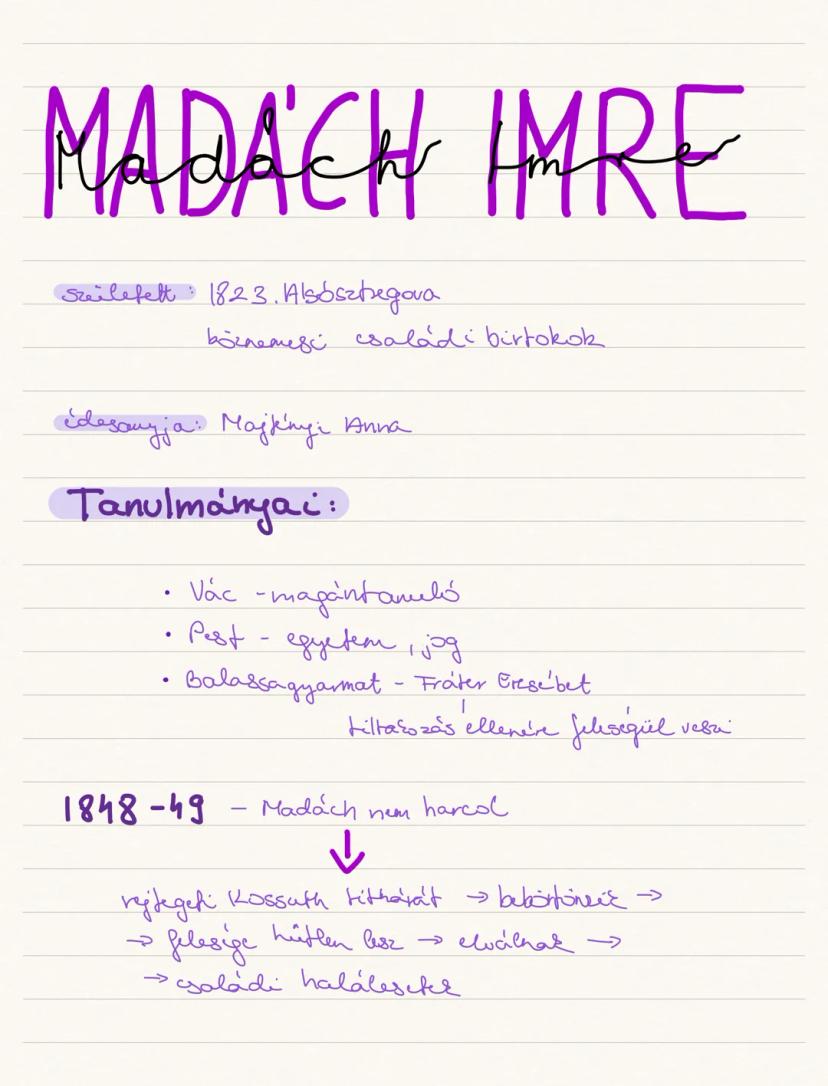 MADÁCH IMRE
Madách Imre
született: 1823. Alsósztregova
köznemesi családi birtokok
édesanyja: Majtényi Anna
Tanulmányai:
• Vác - magántanuló
• Pest - egyetem, jog
• Balassagyarmat - Fráter Erzsébet
tiltakozás ellenére feleségül veszi
1848-49 - Madách nem harcol
↓
rejtegeti Kossuth titkárát → bebörtönzik →
→ felesége hűtlen lesz → elválnak →
→ családi halálesetek